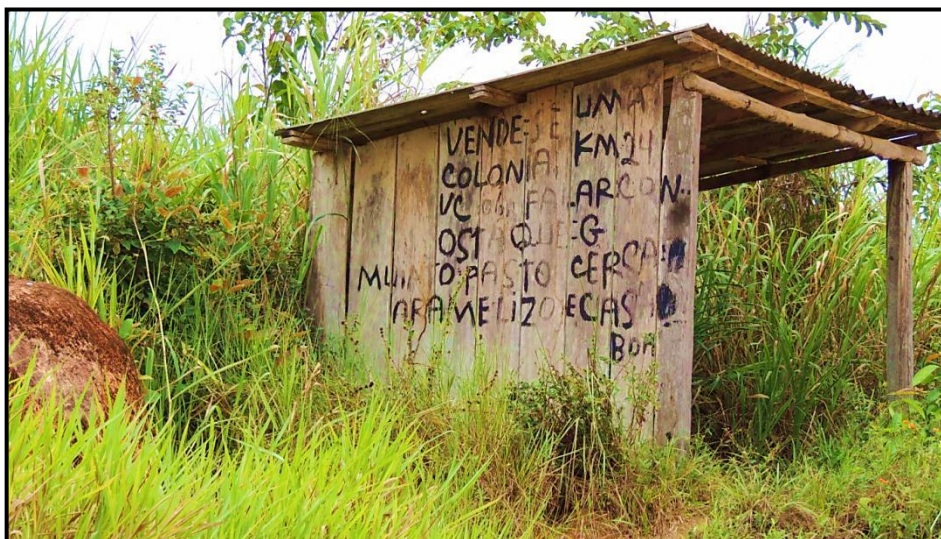 VENDE-SE UMA
COLONIA KM24
VC FALAR CON
OSTAQUE-G
MUINTO PASTO CERCA
ARAMELIZO E CASA
BOA